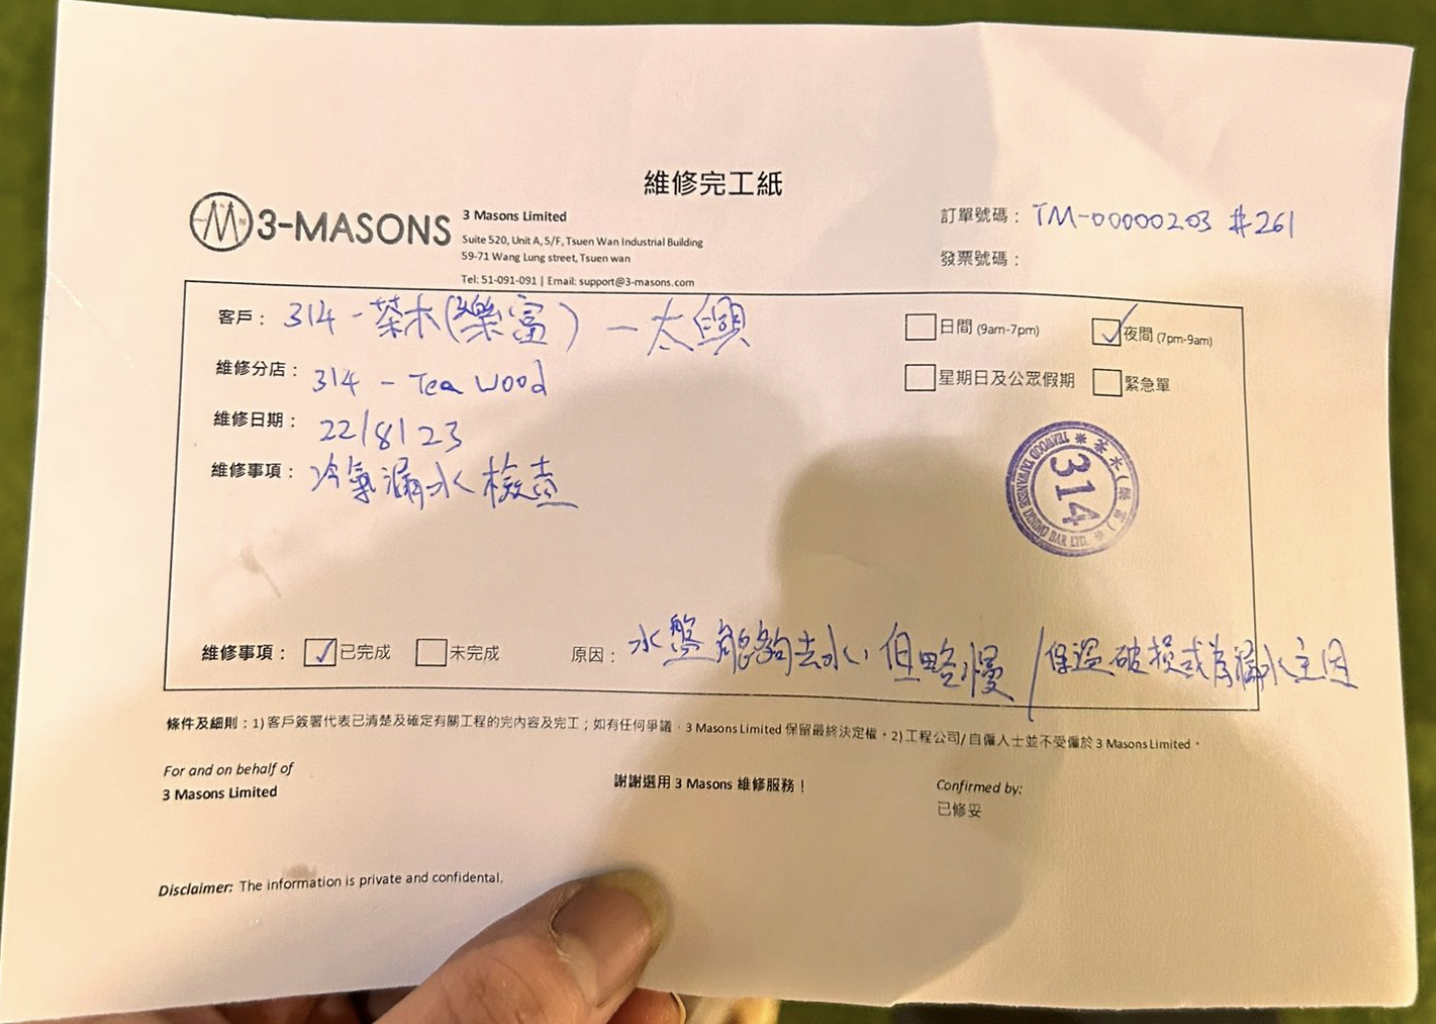 維修完工紙
3-MASONS
3 Masons Limited
Suite 520, Unit A, 5/F, Tsuen Wan Industrial Building
59-71 Wang Lung street, Tsuen wan
Tel: 51-091-091 | Email: support@3-masons.com
訂單號碼： TM-00000203 #261
發票號碼：
客戶： 314 - 茶木(樂富) - 太興
日間 (9am-7pm)
夜間 (7pm-9am)
維修分店： 314 - Tea Wood
星期日及公眾假期
緊急單
維修日期： 22/8/23
維修事項： 冷氣漏水檢查
茶木(樂富)
TEAWOOD TAIWANESE DINING BAR LTD.
314
維修事項： 已完成 未完成 原因： 水盤能夠去水，但略慢 / 保溫破損或為漏水主因
條件及細則：1) 客戶簽署代表已清楚及確定有關工程的完內容及完工；如有任何爭議，3 Masons Limited 保留最終決定權。2) 工程公司/自僱人士並不受僱於 3 Masons Limited。
For and on behalf of
3 Masons Limited
謝謝選用 3 Masons 維修服務！
Confirmed by:
已修妥
Disclaimer: The information is private and confidental.